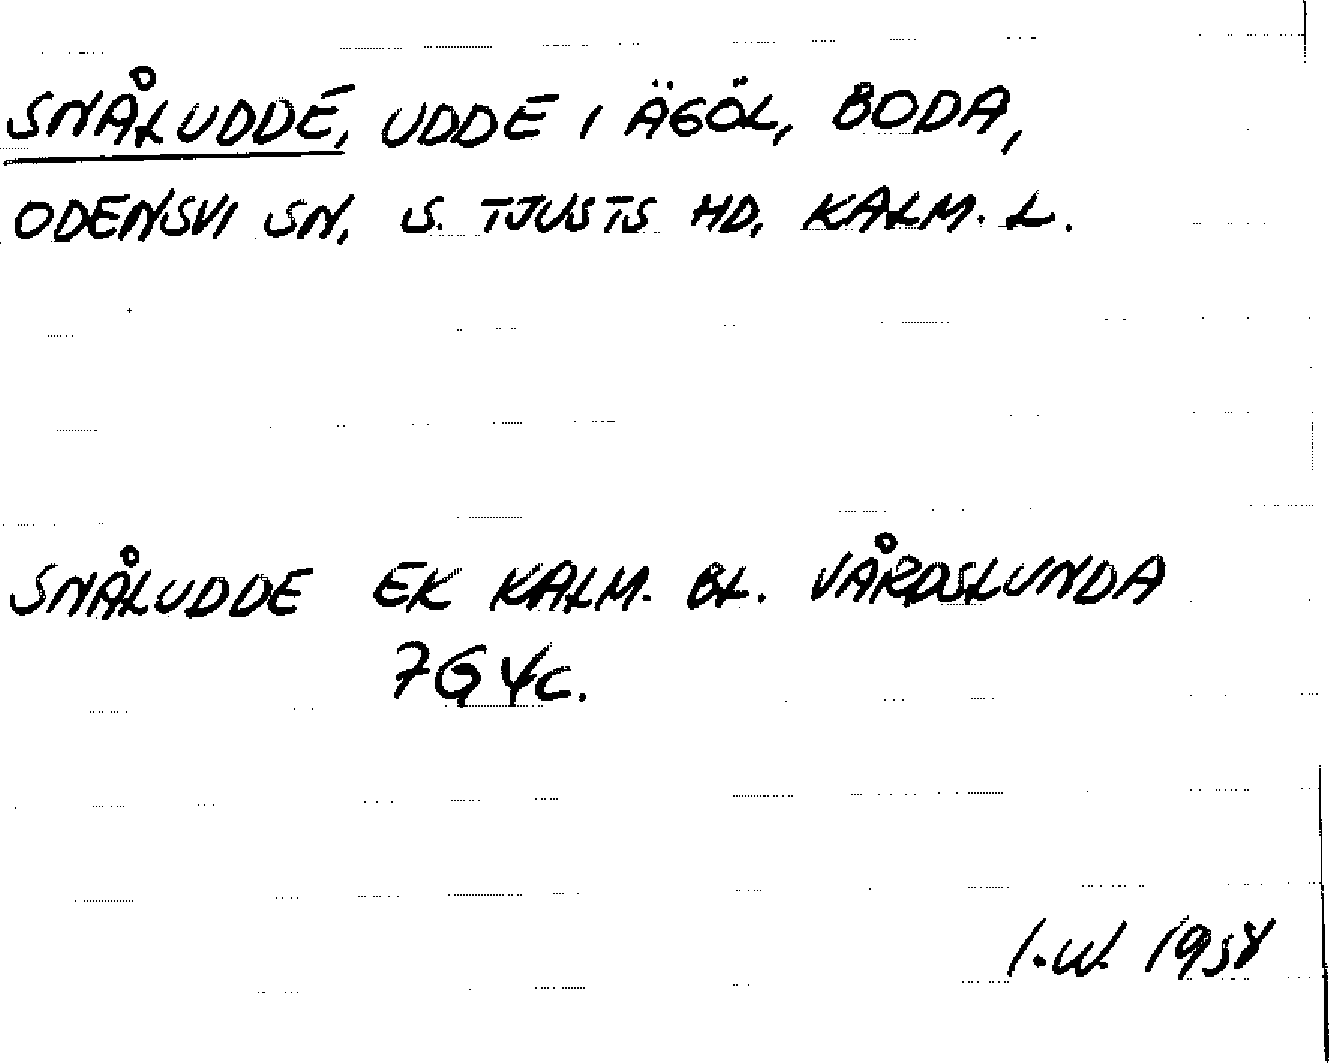 SNÅLUDDE, UDDE I ÄGÖL, BODA,
ODENSVI SN, S. TJUSTS HD, KALM. L.
SNÅLUDDE EK KALM. BL. VÅRDSLUNDA
7G 4c.
I.W. 1958